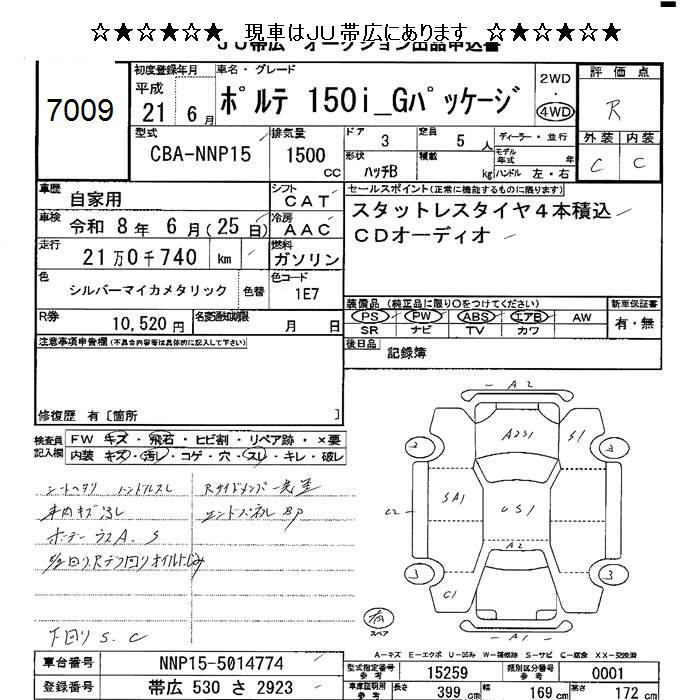 ☆★☆★☆★☆ 現車はＪＵ帯広にあります ☆★☆★☆★☆
ＪＵ帯広 オークション出品申込書
7009
初度登録年月
平成
21 6 月
車名・グレード
ポルテ 150i_Gパッケージ
2WD
・
4WD
評価点
R
型式
CBA-NNP15
排気量
1500
CC
ドア 3
定員 5 人
ディーラー・並行
形状 ハッチB
積載 kg
モデル年式 年
ハンドル 左・右
外装 内装
C C
車歴 自家用
シフト CAT
車検 令和 8年 6月(25日)
冷房 AAC
走行 21万0千740 km
燃料 ガソリン
色 シルバーマイカメタリック 色替
色コード 1E7
R券 10,520円
名変通知期限 月 日
セールスポイント(正常に機能するものに限ります)
スタットレスタイヤ４本積込
CDオーディオ
装備品 (純正品に限り〇をつけてください)
新車保証書
PS PW ABS エアB AW
有・無
SR ナビ TV カワ
後日品 記録簿
注意事項申告欄(不具合内容等は具体的に記入して下さい)
修復歴 有〔箇所 〕
検査員記入欄
FW キズ・飛石・ヒビ割・リペア跡・×要
内装 キズ・汚レ・コゲ・穴・スレ・キレ・破レ
シートヘタリ ハンドルスレ
車内キズ汚レ
エンドパネルBP
下回りS.C
A2
A2S1
S1
3
3
SA1
US1
A2
C2
3
3
C1
A1
有
スペア
A-キズ E-エクボ U-凹み W-補修跡 S-サビ C-腐食 XX-交換済
車台番号 NNP15-5014774
登録番号 帯広 530 さ 2923
型式指定番号 参考 15259
類別区分番号 参考 0001
車庫証明用 参考
長さ 399 cm
幅 169 cm
高さ 172 cm